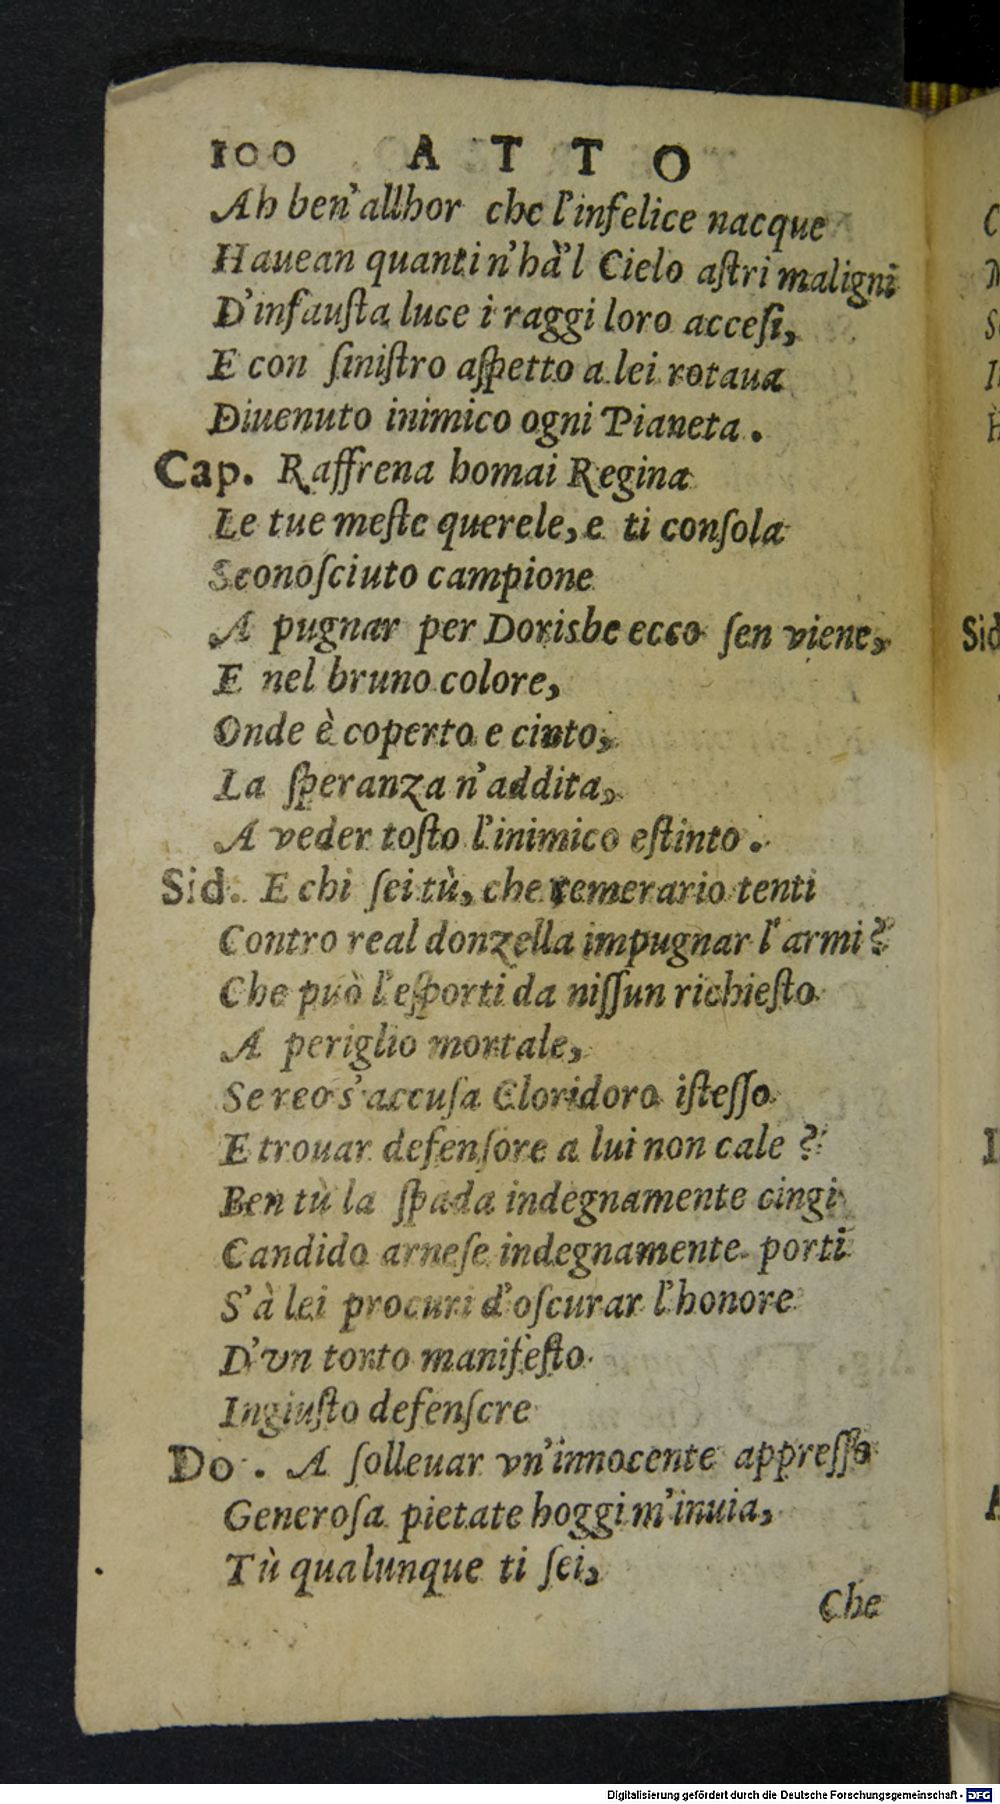 100 ATTO
Ah ben'allhor che l'infelice nacque
Hauean quanti n'hà'l Cielo aſtri maligni
D'infauſta luce i raggi loro acceſi,
E con ſiniſtro aſpetto a lei rotaua
Diuenuto inimico ogni Pianeta.
Cap. Raffrena homai Regina
Le tue meſte querele, e ti conſola
Sconoſciuto campione
A pugnar per Dorisbe ecco ſen viene,
E nel bruno colore,
Onde è coperto e cinto,
La ſperanza n'addita,
A veder toſto l'inimico eſtinto.
Sid. E chi ſei tù, che temerario tenti
Contro real donzella impugnar l'armi?
Che può l'eſporti da niſſun richieſto
A periglio mortale,
Se reo s'accuſa Cloridoro iſteſſo
E trouar defenſore a lui non cale?
Ben tù la ſpada indegnamente cingi
Candido arneſe indegnamente porti
S'à lei procuri d'oſcurar l'honore
D'vn torto manifeſto
Ingiuſto defenſcre
Do. A ſolleuar vn'innocente appreſſo
Generoſa pietate hoggi m'inuia,
Tù qualunque ti ſei,
Che
C
Sid
I
Digitalisierung gefördert durch die Deutsche Forschungsgemeinschaft - DFG